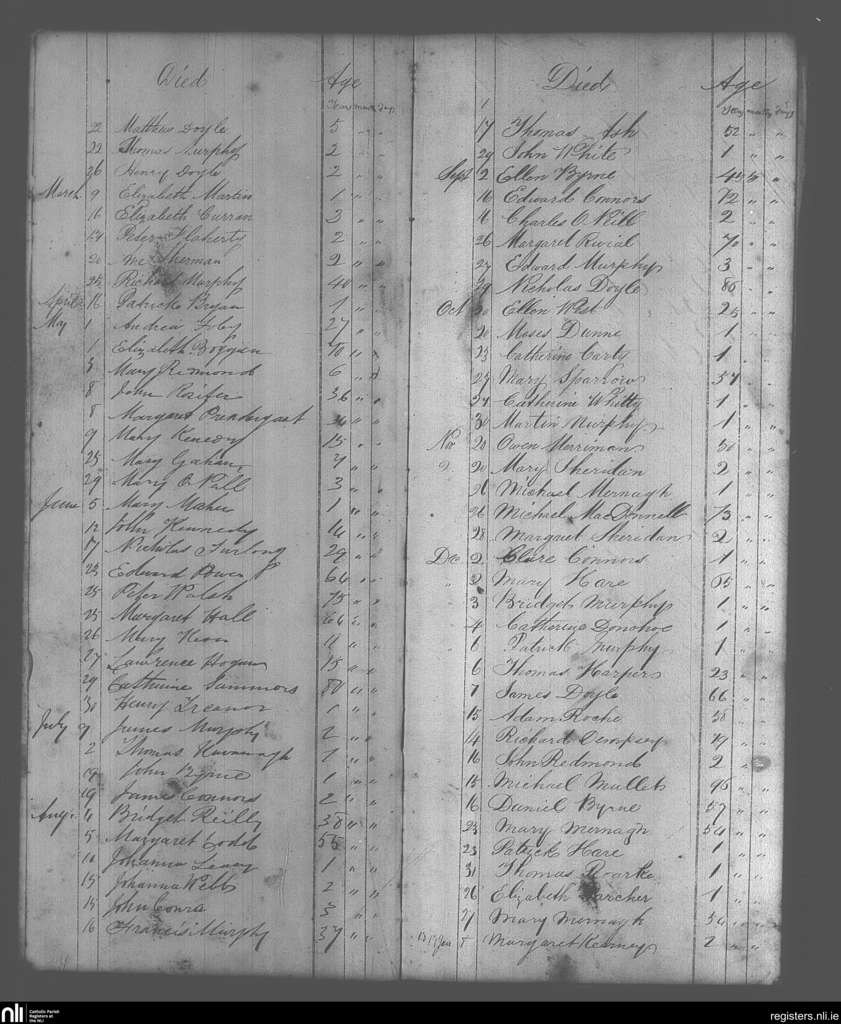 Died Age
Years months days
22 Matthew Doyle 5 " "
22 Thomas Murphy 2 " "
26 Henry Doyle 2 " "
March 9 Elizabeth Martin 1 " "
16 Elizabeth Curran 3 " "
Peter Flaherty 2 " "
20 Mc Sherman 2 " "
25 Richard Murphy 40 " "
April 16 Patrick Bryan 1 " "
May 1 Andrew Foley 27 " "
1 Elizabeth Boggan 70 " "
3 Mary Redmond 6 " "
8 John Rositer 36 " "
8 Margaret Prendergast " "
9 Mary Kenedy 15 " "
25 Mary Gahan " "
29 Mary O Neill 3 " "
June 5 Mary Maher 1 " "
12 John Kennedy " "
17 Nicholas Furlong 29 " "
Edward Power 66 " "
25 Peter Walsh 75 " "
25 Margaret Hall 66 " "
26 Mary 11 " "
27 Lawrence Hogan 15 " "
29 Catherine Sammons 80 " "
30 Henry Treanor 1 " "
July James Murphy 2 " "
2 Thomas Kavanagh 1 " "
John Byrne 1 " "
19 James Connors 2 " "
Augt 4 Bridget Reilly 38 " "
5 Margaret Codd 55 " "
Johanna Leary 1 " "
15 Johanna Webb 2 " "
15 John 3 " "
16 Francis Murphy 37 " "
Died Age
Years months days
17 Thomas Ash 52 " "
29 John White 1 " "
Sept 2 Ellen Byrne " "
16 Edward Connors 72 " "
Charles O Neill 2 " "
26 Margaret 70 " "
27 Edward Murphy 3 " "
29 Nicholas Doyle 80 " "
Oct Ellen West 25 " "
20 Moses Dunne 1 " "
23 Catherine Carty 1 " "
Mary Sparrow 57 " "
Catherine Whitty 1 " "
30 Martin Murphy 1 " "
Nov 20 Owen Merriman 50 " "
20 Mary Sheridan 2 " "
26 Michael Mernagh 1 " "
26 Michael MacDonnell 73 " "
28 Margaret Sheridan 2 " "
Dec 2 Clare Connors 1 " "
" 2 Mary Hare 65 " "
3 Bridget Murphy 1 " "
4 Catherine Donohoe 1 " "
6 Patrick Murphy 1 " "
6 Thomas Harpers 23 " "
7 James Doyle 66 " "
15 Adam Roche 58 " "
14 Richard Dempsey " "
16 John Redmond 2 " "
15 Michael Mullets " "
16 Daniel Byrne 57 " "
23 Mary Mernagh 54 " "
23 Patrick Hare 1 " "
31 Thomas Roarke 1 " "
26 Elizabeth 1 " "
Mary Mernagh 54 " "
Jan 8 Margaret 2 " "
nli
Catholic Parish
Registers at
the NLI
registers.nli.ie